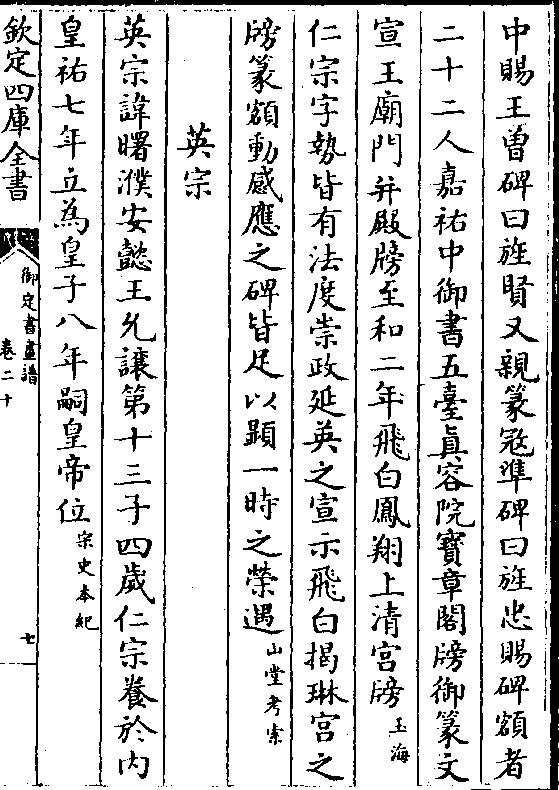 中賜王曽碑曰旌賢又親篆冦準碑曰旌忠賜碑額者
二十二人嘉祐中御書五臺真容院寶章閣牓御篆文
宣王廟門并殿牓至和二年飛白鳳翔上清宮牓玉海
仁宗字勢皆有法度崇政延英之宣示飛白揭琳宮之
牓篆額動感應之碑皆足以顯一時之榮遇山堂考索
英宗
英宗諱曙濮安懿王允讓第十三子四歲仁宗養於内
皇祐七年立為皇子八年嗣皇帝位宗史本紀
欽定四庫全書
御定書畫譜
卷二十
七